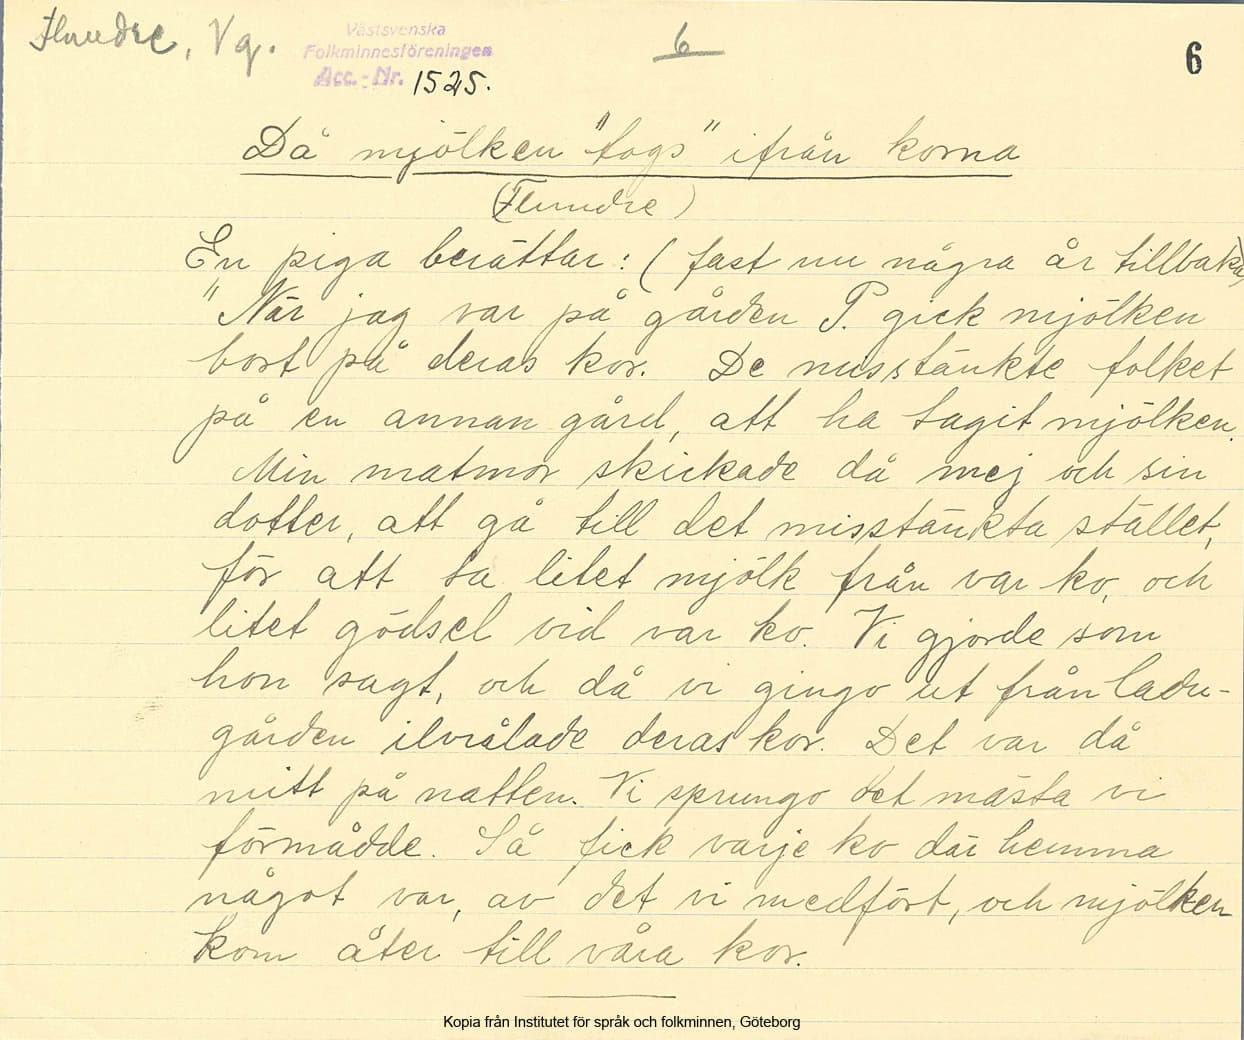 Flundre, Vg.
Västsvenska
Folkminnesföreningen
Acc.-Nr. 1525.
6
6
Då mjölken "togs" ifrån korna
(Flundre)
En piga berättar: (fast nu några år tillbaka)
"När jag var på gården P. gick mjölken
bort på deras kor. De misstänkte folket
på en annan gård, att ha tagit mjölken.
Min matmor skickade då mej och sin
dotter, att gå till det misstänkta stället,
för att ta litet mjölk från var ko, och
litet gödsel vid var ko. Vi gjorde som
hon sagt, och då vi gingo ut från ladu-
gården ilvrålade deras kor. Det var då
mitt på natten. Vi sprungo det mästa vi
förmådde. Så fick varje ko där hemma
något var, av det vi medfört, och mjölken
kom åter till våra kor.
Kopia från Institutet för språk och folkminnen, Göteborg